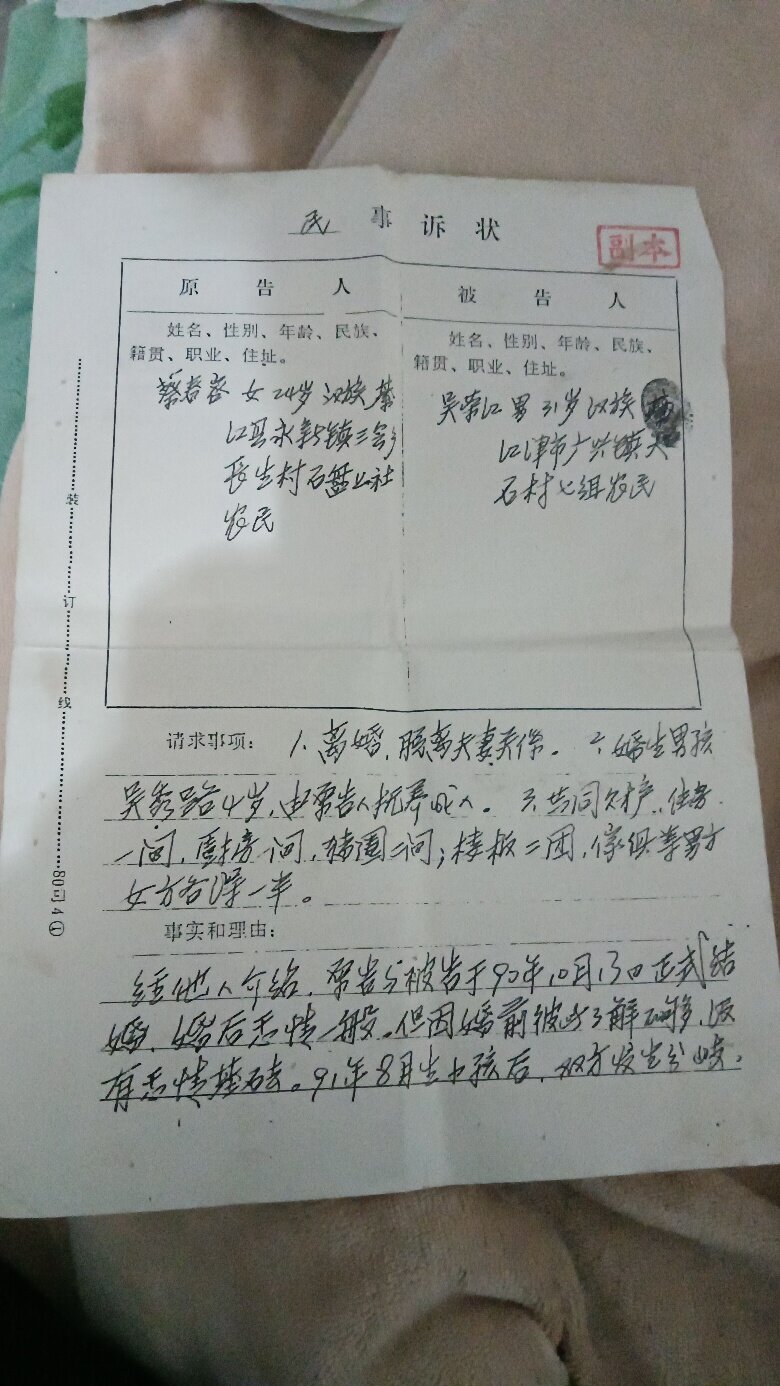 民事诉状
副本
原告人
被告人
姓名、性别、年龄、民族、
籍贯、职业、住址。
姓名、性别、年龄、民族、
籍贯、职业、住址。
蔡春容 女 24岁 汉族 綦
江县永新镇三会乡
长生村石盘山社
农民
吴荣江 男 31岁 汉族
江津市广兴镇大
石村七组农民
装
订
线
80司4①
请求事项: 1.离婚,脱离夫妻关系。 2.婚生男孩
4岁,由原告人抚养成人。 3.共同财产,住房
一间,厨房一间,猪圈二间;楼板二团,傢俱等男方
女方各得一半。
事实和理由:
经他人介绍,原告与被告于90年10月13日正式结
婚,婚后感情一般。但因婚前彼此了解不够,没
有感情基础。91年8月生小孩后,双方发生分岐,